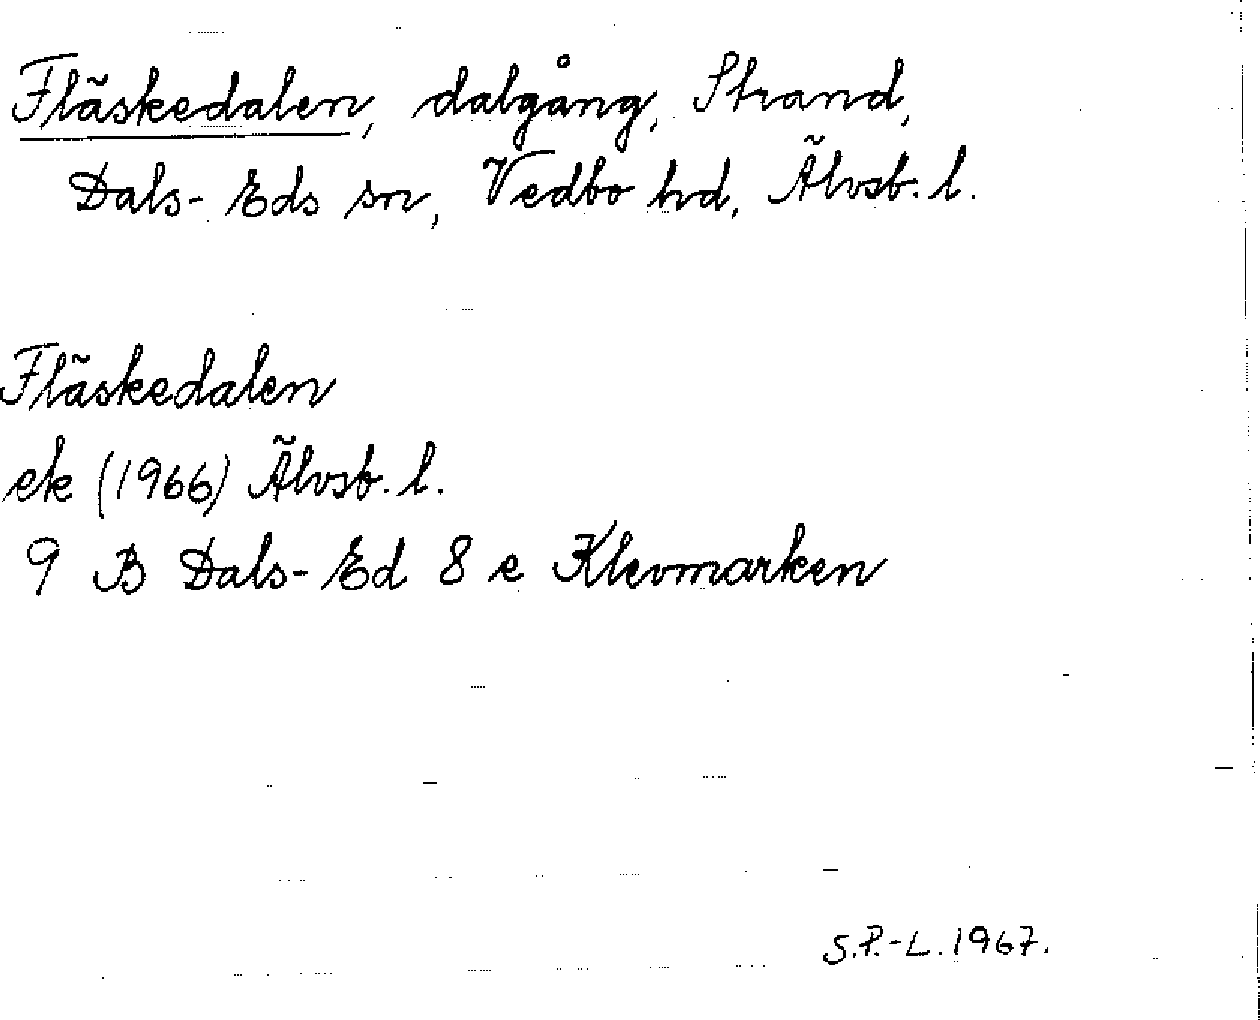 Fläskedalen, dalgång, Strand,
Dals-Eds sn, Vedbo hd, Älvsb. l.
Fläskedalen
ek (1966) Älvsb. l.
9 B Dals-Ed 8 e Klevmarken
S.P.-L. 1967.